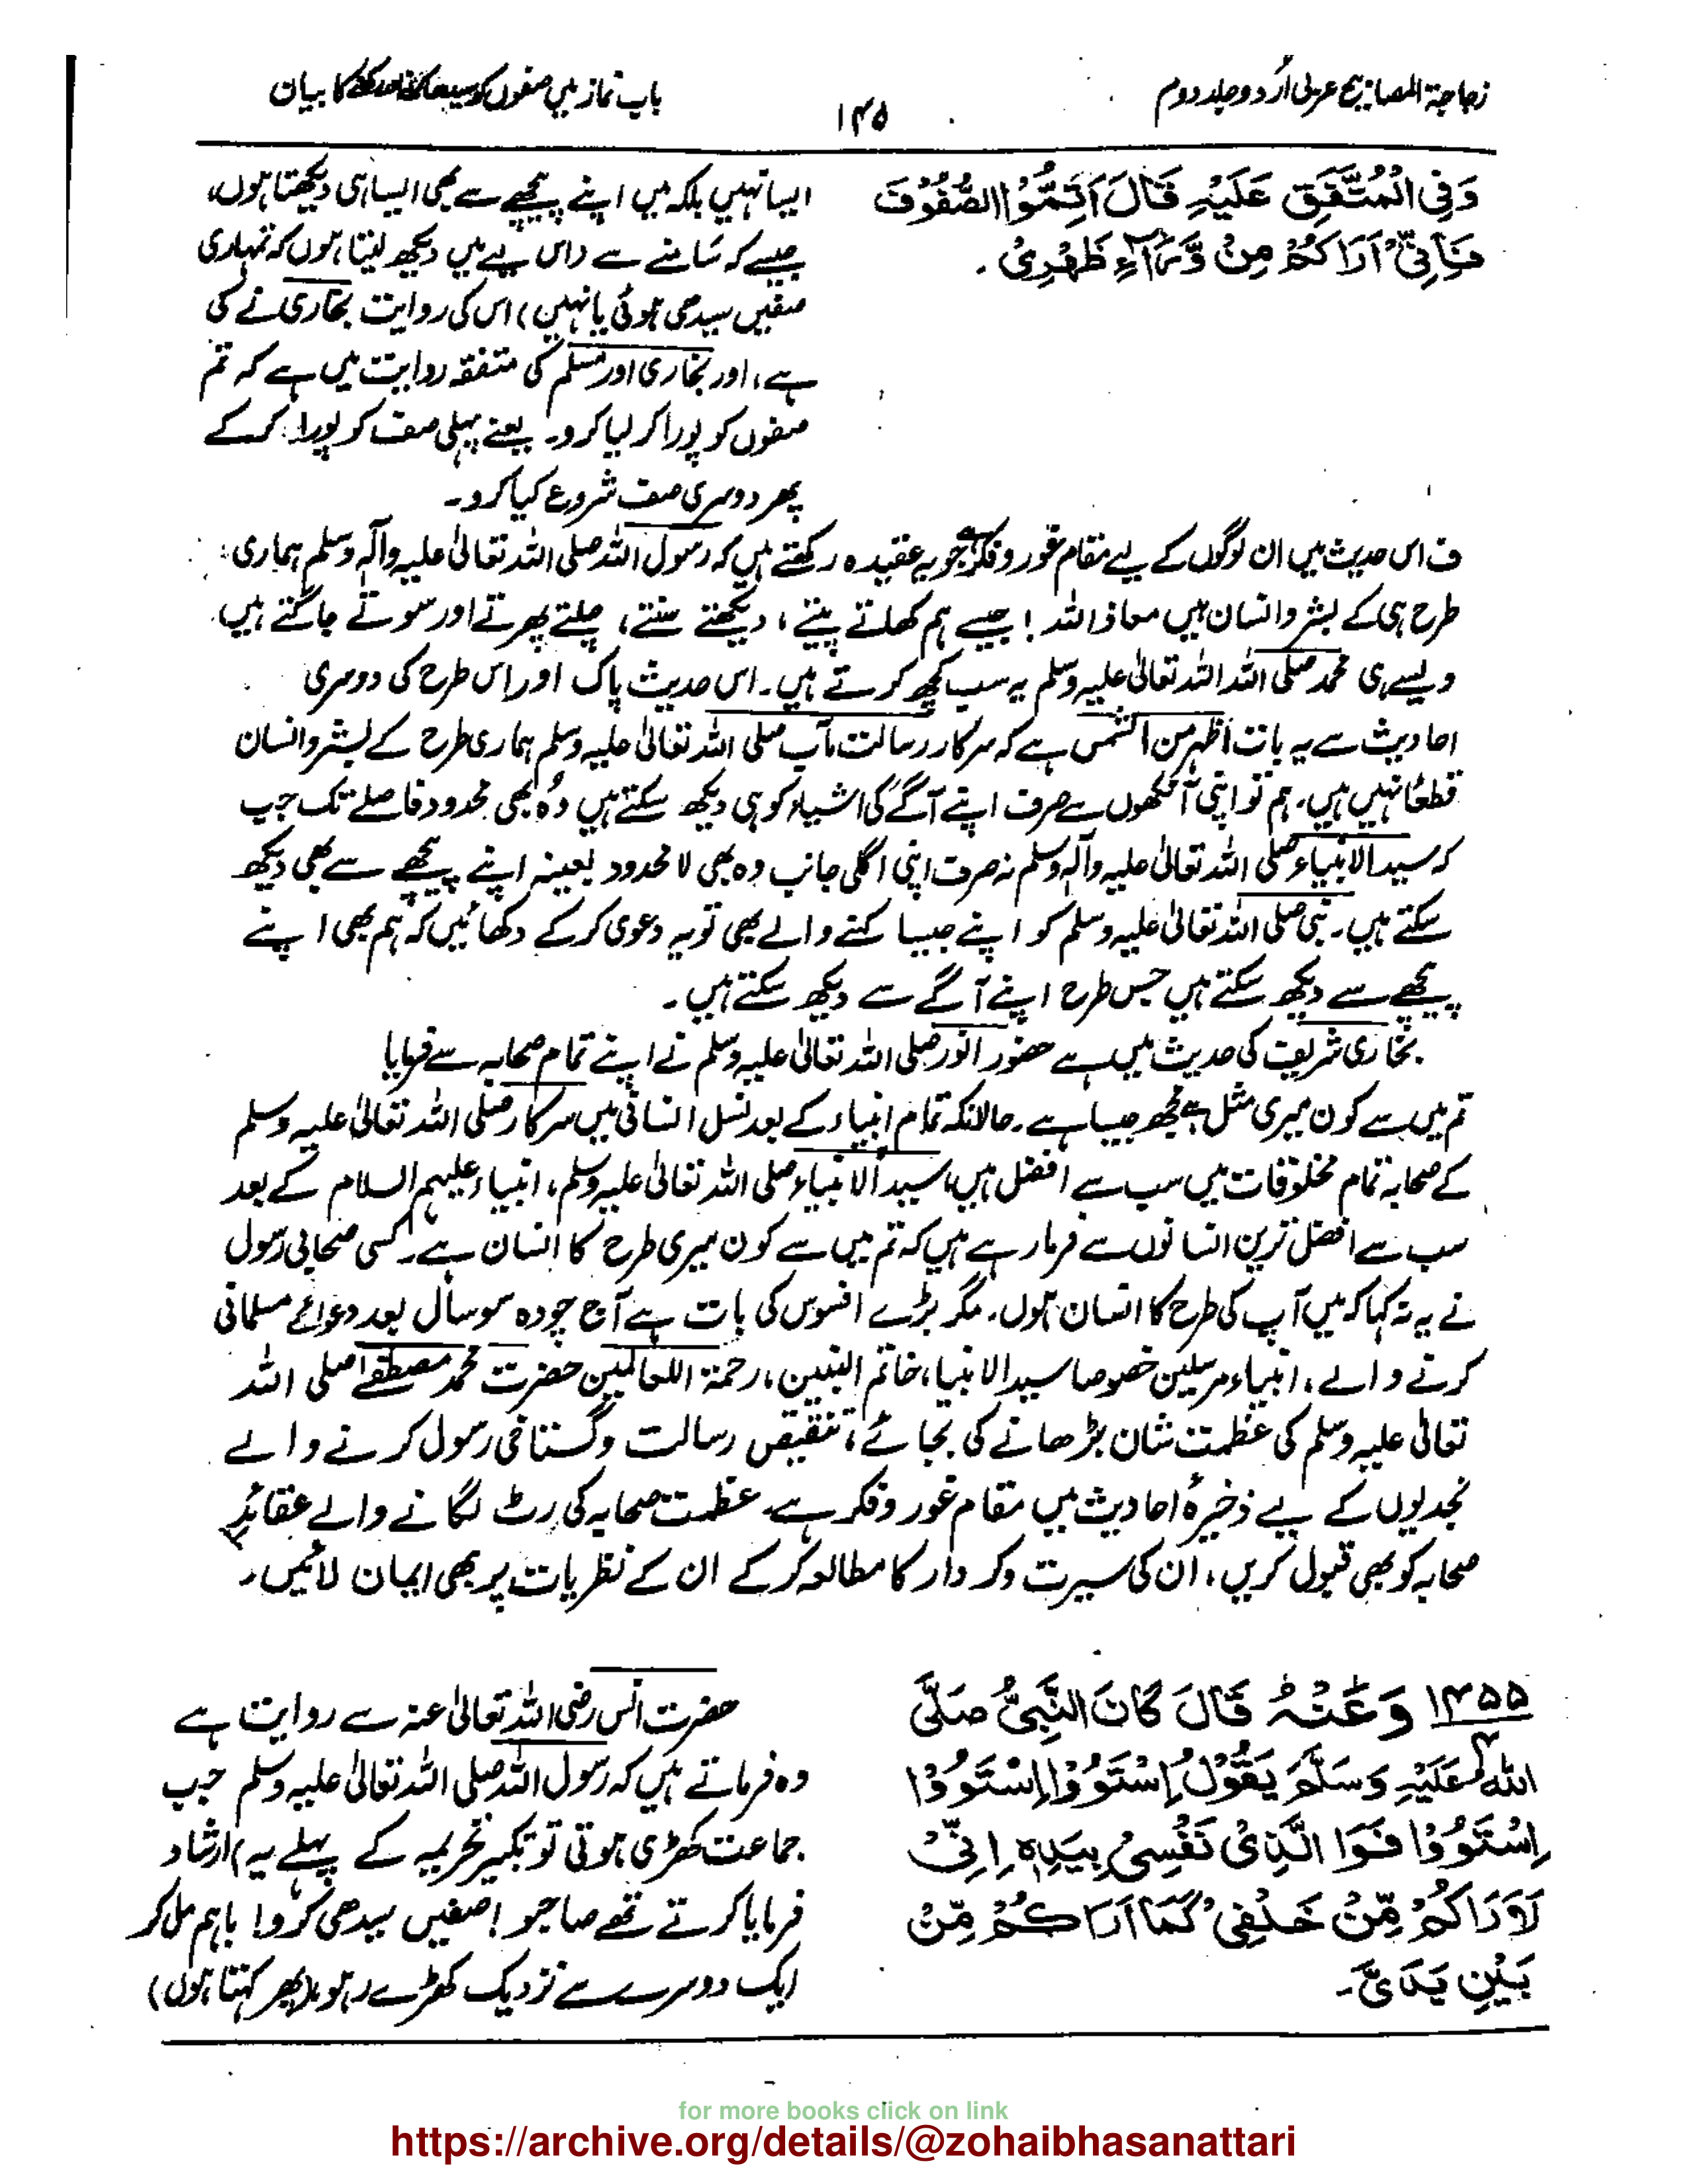 زجاجۃ المصابیح عربی اُردو جلد دوم
۱۴۵
باب نماز میں صفوں کو سیدھا کا بیان
وَفِي الْمُتَّفَقِ عَلَيْهِ قَالَ اَتِمُّوْا الصُّفُوْفَ
فَاِنِّيْ اَرَاكُمْ مِنْ وَّرَآءِ ظَهْرِيْ۔
ایسا نہیں بلکہ میں اپنے پیچھے سے بھی ایسا ہی دیکھتا ہوں،
جیسے کہ سَامنے سے (اس لیے میں دیکھ لیتا ہوں کہ تمہاری
صفیں سیدھی ہوئی یا نہیں) اس کی روایت بخاری نے کی
ہے، اور بخاری اور مسلم کی متفقہ روایت میں ہے کہ تم
صفوں کو پورا کر لیا کرو۔ یعنے پہلی صف کو پورا کر کے
پھر دوسری صف شروع کیا کرو۔
ف اس حدیث میں ان لوگوں کے لیے مقام غور و فکر ہے جو یہ عقیدہ رکھتے ہیں کہ رسول اللہ صلی اللہ تعالیٰ علیہ وآلہٖ وسلم ہماری
طرح ہی کے بشر و انسان ہیں معاذ اللہ ! جیسے ہم کھاتے پیتے، دیکھتے سنتے، چلتے پھرتے اور سوتے جاگتے ہیں۔
ویسے ہی محمد صلی اللہ اللہ تعالیٰ علیہ وسلم یہ سب کچھ کرتے ہیں۔ اس حدیث پاک اور اس طرح کی دوسری
احادیث سے یہ بات اظہر من الشمس ہے کہ سرکار رسالت مآب صلی اللہ تعالیٰ علیہ وسلم ہماری طرح کے بشر و انسان
قطعًا نہیں ہیں، ہم تو اپنی آنکھوں سے صرف اپنے آگے کی اشیاء کو ہی دیکھ سکتے ہیں وہُ بھی محدود فاصلے تک جب
کہ سید الانبیاء صلی اللہ تعالیٰ علیہ وآلہٖ وسلم نہ صرف اپنی اگلی جانب وہ بھی لا محدود بعینہ اپنے پیچھے سے بھی دیکھ
سکتے ہیں۔ نبی صلی اللہ تعالیٰ علیہ وسلم کو اپنے جیسا کہنے والے بھی تو یہ دعوی کر کے دکھائیں کہ ہم بھی اپنے
پیچھے سے دیکھ سکتے ہیں جس طرح اپنے آگے سے دیکھ سکتے ہیں۔
بخاری شریف کی حدیث میں ہے حضور انور صلی اللہ تعالیٰ علیہ وسلم نے اپنے تمام صحابہ سے فرمایا
تم میں سے کون میری مثل ہے مجھ جیسا ہے۔ حالانکہ تمام انبیاء کے بعد نسل انسانی میں سرکار صلی اللہ تعالیٰ علیہ وسلم
کے صحابہ تمام مخلوقات میں سب سے افضل ہیں، سید الانبیاء صلی اللہ تعالیٰ علیہ وسلم، انبیاء علیہم السلام کے بعد
سب سے افضل ترین انسانوں سے فرما رہے ہیں کہ تم میں سے کون میری طرح کا انسان ہے۔ کسی صحابی رسول
نے یہ نہ کہا کہ میں آپ کی طرح کا انسان ہوں۔ مگر بڑے افسوس کی بات ہے آج چودہ سو سال بعد دعوائے مسلمانی
کرنے والے، انبیاء و مرسلین خصوصا سید الانبیاء، خاتم النبیین، رحمۃ اللعالمین حضرت محمد مصطفےٰ صلی اللہ
تعالیٰ علیہ وسلم کی عظمت شان بڑھانے کی بجائے، تنقیص رسالت وگستاخی رسول کرنے والے
نجدیوں کے لیے ذخیرۂ احادیث میں مقام غور وفکر ہے۔ عظمت صحابہ کی رٹ لگانے والے عقائدِ
صحابہ کو بھی قبول کریں، ان کی سیرت وکردار کا مطالعہ کر کے ان کے نظریات پر بھی ایمان لائیں۔
۱۴۵۵ وَعَنْهُ قَالَ كَانَ النَّبِيُّ صَلَّى
اللهُ عَلَيْهِ وَسَلَّمَ يَقُوْلُ اِسْتَوُوْا اِسْتَوُوْا
اِسْتَوُوْا فَوَا الَّذِيْ نَفْسِيْ بِيَدِهٖ اِنِّيْ
لَاَرَاكُمْ مِّنْ خَلْفِيْ كَمَا اَرَاكُمْ مِّنْ
بَيْنِ يَدَيَّ۔
حضرت انس رضی اللہ تعالیٰ عنہ سے روایت ہے
وہ فرماتے ہیں کہ رسول اللہ صلی اللہ تعالیٰ علیہ وسلم جب
جماعت کھڑی ہوتی تو تکبیر تحریمہ کے پہلے یہ) ارشاد
فرمایا کرتے تھے صاحبو! صفیں سیدھی کرو! باہم مل کر
ایک دوسرے سے نزدیک کھڑے رہو (پھر کہتا ہوں)
for more books click on link
https://archive.org/details/@zohaibhasanattari